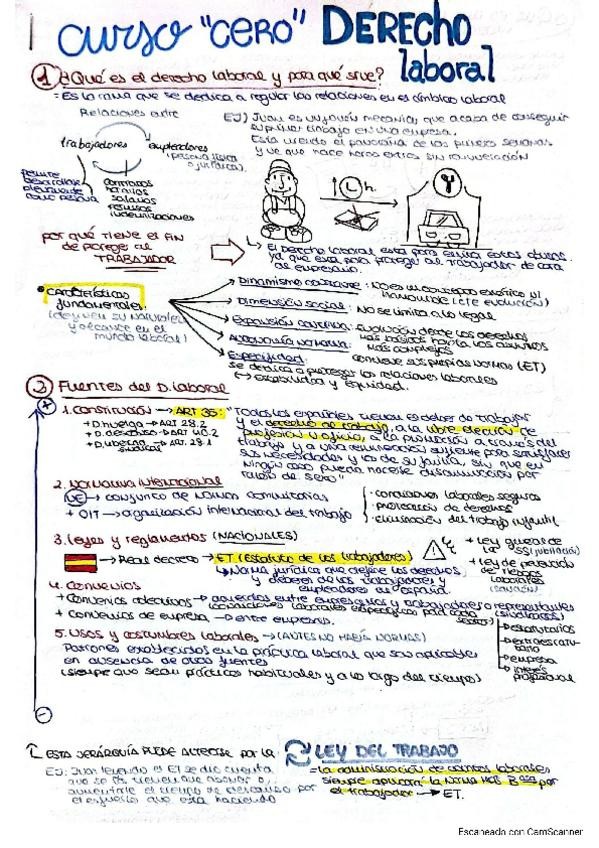 curso "cero" DERECHO
laboral
1 ¿Qué es el derecho laboral y para qué sirve?
= Es la rama que se dedica a regular las relaciones en el ámbito laboral
Relaciones entre
trabajadores empleadores
(persona física o jurídica)
permite desarrollarse
como persona
contratos
horarios
salarios
permisos
indemnizaciones
EJ) Juan es un joven mecánico que acaba de conseguir
su primer trabajo en una empresa.
Está viendo el panorama de las primeras semanas
y ve que hace horas extras sin remuneración
↑ h
por qué tiene el fin
de proteger al
TRABAJADOR
El derecho laboral está para evitar estos abusos.
ya que está para proteger al trabajador de cara
al empresario.
• características
fundamentales:
(definen su naturaleza
y alcance en el
mundo laboral)
Dinamismo constante: No es un concepto estático ni
inamovible (cte evolución)
Dimensión social: No se limita a lo legal
Expansión continua: Evolución desde los derechos
más básicos hasta los asuntos
más complejos
Autonomía normativa: contiene sus propias normas (ET)
Especificidad:
se dedica a proteger las relaciones laborales
↳ estabilidad y equidad.
2 Fuentes del D. laboral
+
1. Constitución → ART 35: "Todos los españoles tienen el deber de trabajar
y el derecho al trabajo, a la libre elección de
profesión u oficio, a la promoción a través del
trabajo y a una remuneración suficiente para satisfacer
sus necesidades y las de su familia, sin que en
ningún caso pueda hacerse discriminación por
razón de sexo"
+ D. huelga → ART 28.2
+ D. descanso → ART 40.2
+ D. libertad sindical → ART. 28.1
2. Normativa internacional
UE → conjunto de normas comunitarias
+ OIT → organización internacional del trabajo
· condiciones laborales seguras
· protección de derechos
· eliminación del trabajo infantil
3. Leyes y reglamentos (NACIONALES)
→ Real decreto → ET (Estatuto de los trabajadores)
↳ Norma jurídica que define los derechos
y deberes de los trabajadores y
empleadores en España.
+ Ley general de
la SS (jubilación)
+ Ley de prevención
de riesgos
laborales
4. Convenios
+ Convenios colectivos → acuerdos entre empresarios y trabajadores o representantes
(condiciones laborales específicas para cada sector) (sindicatos)
+ Convenios de empresa → entre empresa.
→ estatutarios
→ extraestatutario
→ empresa
→ interés
profesional
5. Usos y costumbres laborales → (ANTES NO HABÍA NORMAS)
Patrones establecidos en la práctica laboral que son aplicables
en ausencia de otras fuentes
(siempre que sean prácticas habituales y a lo largo del tiempo)
-
ESTA JERARQUÍA PUEDE ALTERARSE POR LA LEY DEL TRABAJO
EJ: Juan leyendo el ET se dio cuenta
= la administración de asuntos laborales
siempre aplicará la norma más por
el trabajador → ET.
Escaneado con CamScanner